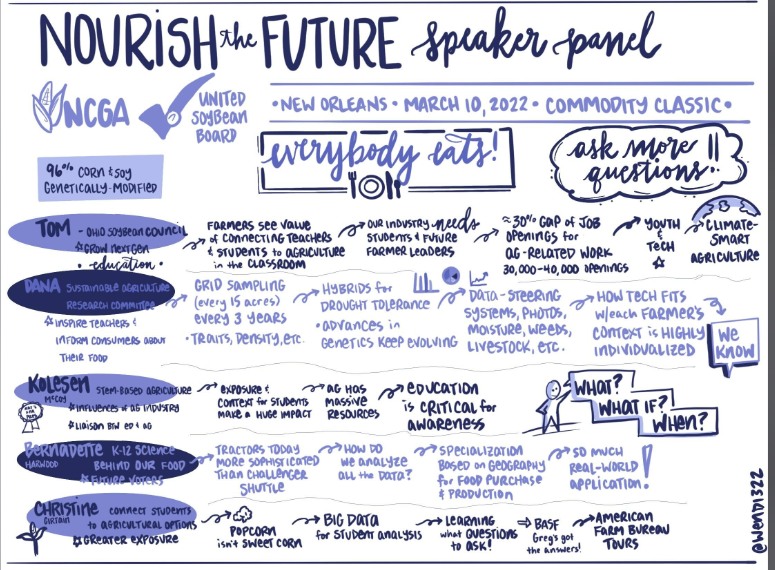 NOURISH the FUTURE speaker panel
NCGA
UNITED
SOYBEAN
BOARD
• NEW ORLEANS • MARCH 10, 2022 • COMMODITY CLASSIC •
96% CORN & SOY
GENETICALLY-MODIFIED
everybody eats!
ask more
questions!
TOM - OHIO SOYBEAN COUNCIL
GROW NEXTGEN
• education •
FARMERS SEE VALUE
of CONNECTING TEACHERS
& STUDENTS to AGRICULTURE
in the CLASSROOM
OUR INDUSTRY needs
STUDENTS & FUTURE
FARMER LEADERS
≈30% GAP of JOB
OPENINGS for
AG-RELATED WORK
30,000-40,000 OPENINGS
YOUTH
&
TECH
CLIMATE-
SMART
AGRICULTURE
DANA SUSTAINABLE AGRICULTURE
RESEARCH COMMITTEE
INSPIRE TEACHERS &
INFORM CONSUMERS ABOUT
THEIR FOOD
GRID SAMPLING
(every 15 acres)
EVERY 3 YEARS
• TRAITS, DENSITY, ETC.
HYBRIDS for
DROUGHT TOLERANCE
• ADVANCES in
GENETICS KEEP EVOLVING
DATA-STEERING
SYSTEMS, PHOTOS,
MOISTURE, WEEDS,
LIVESTOCK, ETC.
HOW TECH FITS
w/each FARMER'S
CONTEXT is HIGHLY
INDIVIDUALIZED
WE
KNOW
KOLESEN
McCOY
STEM-BASED AGRICULTURE
INFLUENCES of AG INDUSTRY
LIAISON BTW ED & AG
EXPOSURE &
CONTEXT for STUDENTS
MAKE A HUGE IMPACT
AG HAS
MASSIVE
RESOURCES
EDUCATION
is CRITICAL for
AWARENESS
WHAT?
WHAT IF?
WHEN?
BERNADETTE K-12 SCIENCE
HARWOOD BEHIND OUR FOOD
FUTURE VOTERS
TRACTORS TODAY
MORE SOPHISTICATED
THAN CHALLENGER
SHUTTLE
HOW DO
WE ANALYZE
ALL the DATA?
SPECIALIZATION
BASED on GEOGRAPHY
for FOOD PURCHASE
& PRODUCTION
SO MUCH
REAL-WORLD
APPLICATION!
CHRISTINE CONNECT STUDENTS
to AGRICULTURAL OPTIONS
GREATER EXPOSURE
POPCORN
isn't SWEET CORN
BIG DATA
for STUDENT ANALYSIS
LEARNING
what QUESTIONS
to ASK!
BASF
Greg's got
the answers!
AMERICAN
FARM BUREAU
TOURS
@WENDI322